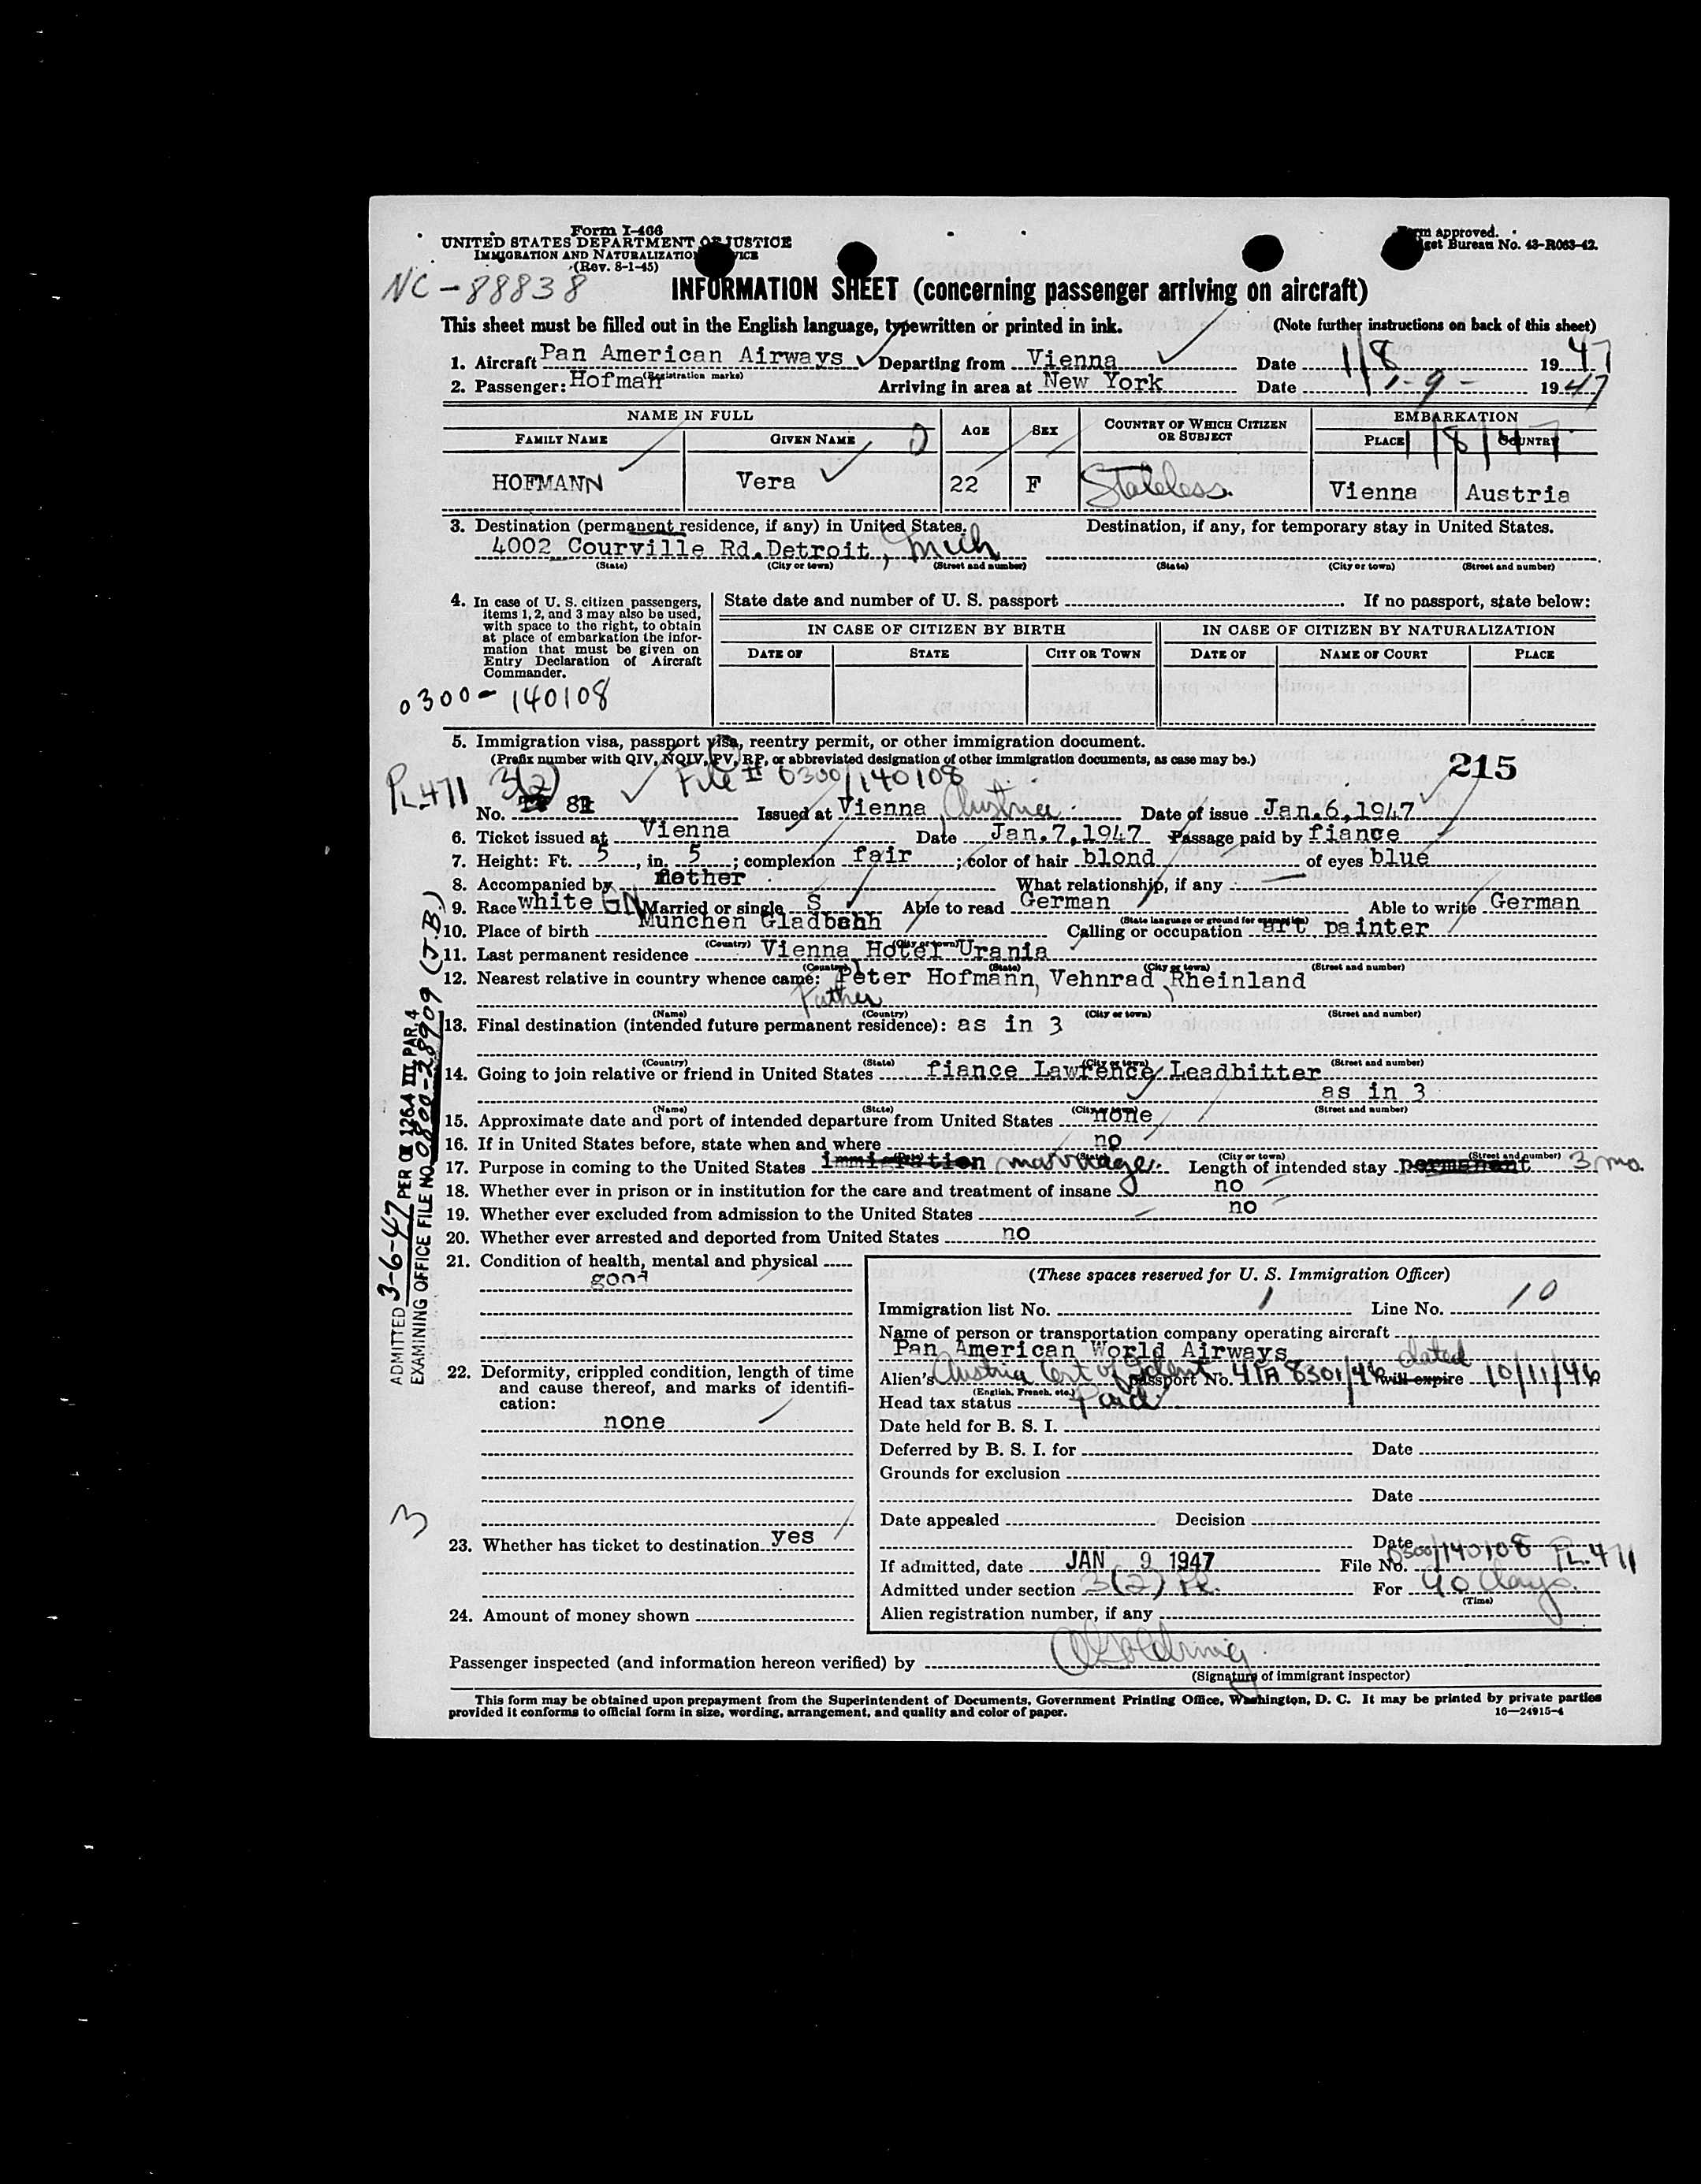 Form I-466
UNITED STATES DEPARTMENT OF JUSTICE
IMMIGRATION AND NATURALIZATION SERVICE
(Rev. 8-1-45)
Form approved.
Budget Bureau No. 43-R063-42.
NC-88838
INFORMATION SHEET (concerning passenger arriving on aircraft)
This sheet must be filled out in the English language, typewritten or printed in ink. (Note further instructions on back of this sheet)
1. Aircraft Pan American Airways Departing from Vienna Date 1/8 1947
(Registration marks)
2. Passenger: Hofmann Arriving in area at New York Date 1-9- 1947
NAME IN FULL AGE SEX COUNTRY OF WHICH CITIZEN OR SUBJECT EMBARKATION
FAMILY NAME GIVEN NAME PLACE COUNTRY
1/8/47
HOFMANN Vera 22 F Stateless Vienna Austria
3. Destination (permanent residence, if any) in United States. Destination, if any, for temporary stay in United States.
4002 Courville Rd. Detroit, Mich
(State) (City or town) (Street and number) (State) (City or town) (Street and number)
4. In case of U. S. citizen passengers, items 1, 2, and 3 may also be used, with space to the right, to obtain at place of embarkation the information that must be given on Entry Declaration of Aircraft Commander.
State date and number of U. S. passport If no passport, state below:
IN CASE OF CITIZEN BY BIRTH IN CASE OF CITIZEN BY NATURALIZATION
DATE OF STATE CITY OR TOWN DATE OF NAME OF COURT PLACE
0300-140108
5. Immigration visa, passport visa, reentry permit, or other immigration document.
(Prefix number with QIV, NQIV, PV, RP, or abbreviated designation of other immigration documents, as case may be.)
215
PL471 3(2) File # 0300/140108
No. 81 Issued at Vienna Austria Date of issue Jan.6,1947
6. Ticket issued at Vienna Date Jan.7,1947 Passage paid by fiance
7. Height: Ft. 5, in. 5; complexion fair; color of hair blond of eyes blue
8. Accompanied by mother What relationship, if any
9. Race white GN Married or single S Able to read German Able to write German
(State language or ground for exemption)
10. Place of birth Munchen Gladbach Calling or occupation art painter
(Country) (City or town)
11. Last permanent residence Vienna Hotel Urania
(Country) (State) (City or town) (Street and number)
12. Nearest relative in country whence came: Peter Hofmann, Vehnrad, Rheinland
Father
(Name) (Country) (City or town) (Street and number)
13. Final destination (intended future permanent residence): as in 3
(Country) (State) (City or town) (Street and number)
14. Going to join relative or friend in United States fiance Lawrence Leadbitter
as in 3
(Name) (State) (City or town) (Street and number)
15. Approximate date and port of intended departure from United States none
16. If in United States before, state when and where no
(State) (City or town) (Street and number)
17. Purpose in coming to the United States immigration marriage Length of intended stay permanent 3 mo.
18. Whether ever in prison or in institution for the care and treatment of insane no
19. Whether ever excluded from admission to the United States no
20. Whether ever arrested and deported from United States no
21. Condition of health, mental and physical
good
22. Deformity, crippled condition, length of time and cause thereof, and marks of identification:
none
23. Whether has ticket to destination yes
24. Amount of money shown
(These spaces reserved for U. S. Immigration Officer)
Immigration list No. 1 Line No. 10
Name of person or transportation company operating aircraft
Pan American World Airways
Alien's Austria Cert of Ident passport No. 41A 8301/46 will expire dated 10/11/46
(English, French, etc.)
Head tax status Paid
Date held for B. S. I.
Deferred by B. S. I. for Date
Grounds for exclusion
Date
Date appealed Decision
Date
If admitted, date JAN 9 1947 File No. 0300/140108 PL471
Admitted under section 3(2) For 40 days
(Time)
Alien registration number, if any
Passenger inspected (and information hereon verified) by
(Signature of immigrant inspector)
This form may be obtained upon prepayment from the Superintendent of Documents, Government Printing Office, Washington, D. C. It may be printed by private parties
provided it conforms to official form in size, wording, arrangement, and quality and color of paper.
16—24915-4
ADMITTED 3-6-47 PER 126A III PAR. 4
EXAMINING OFFICE FILE NO. 0800-28909 (J.B.)
3